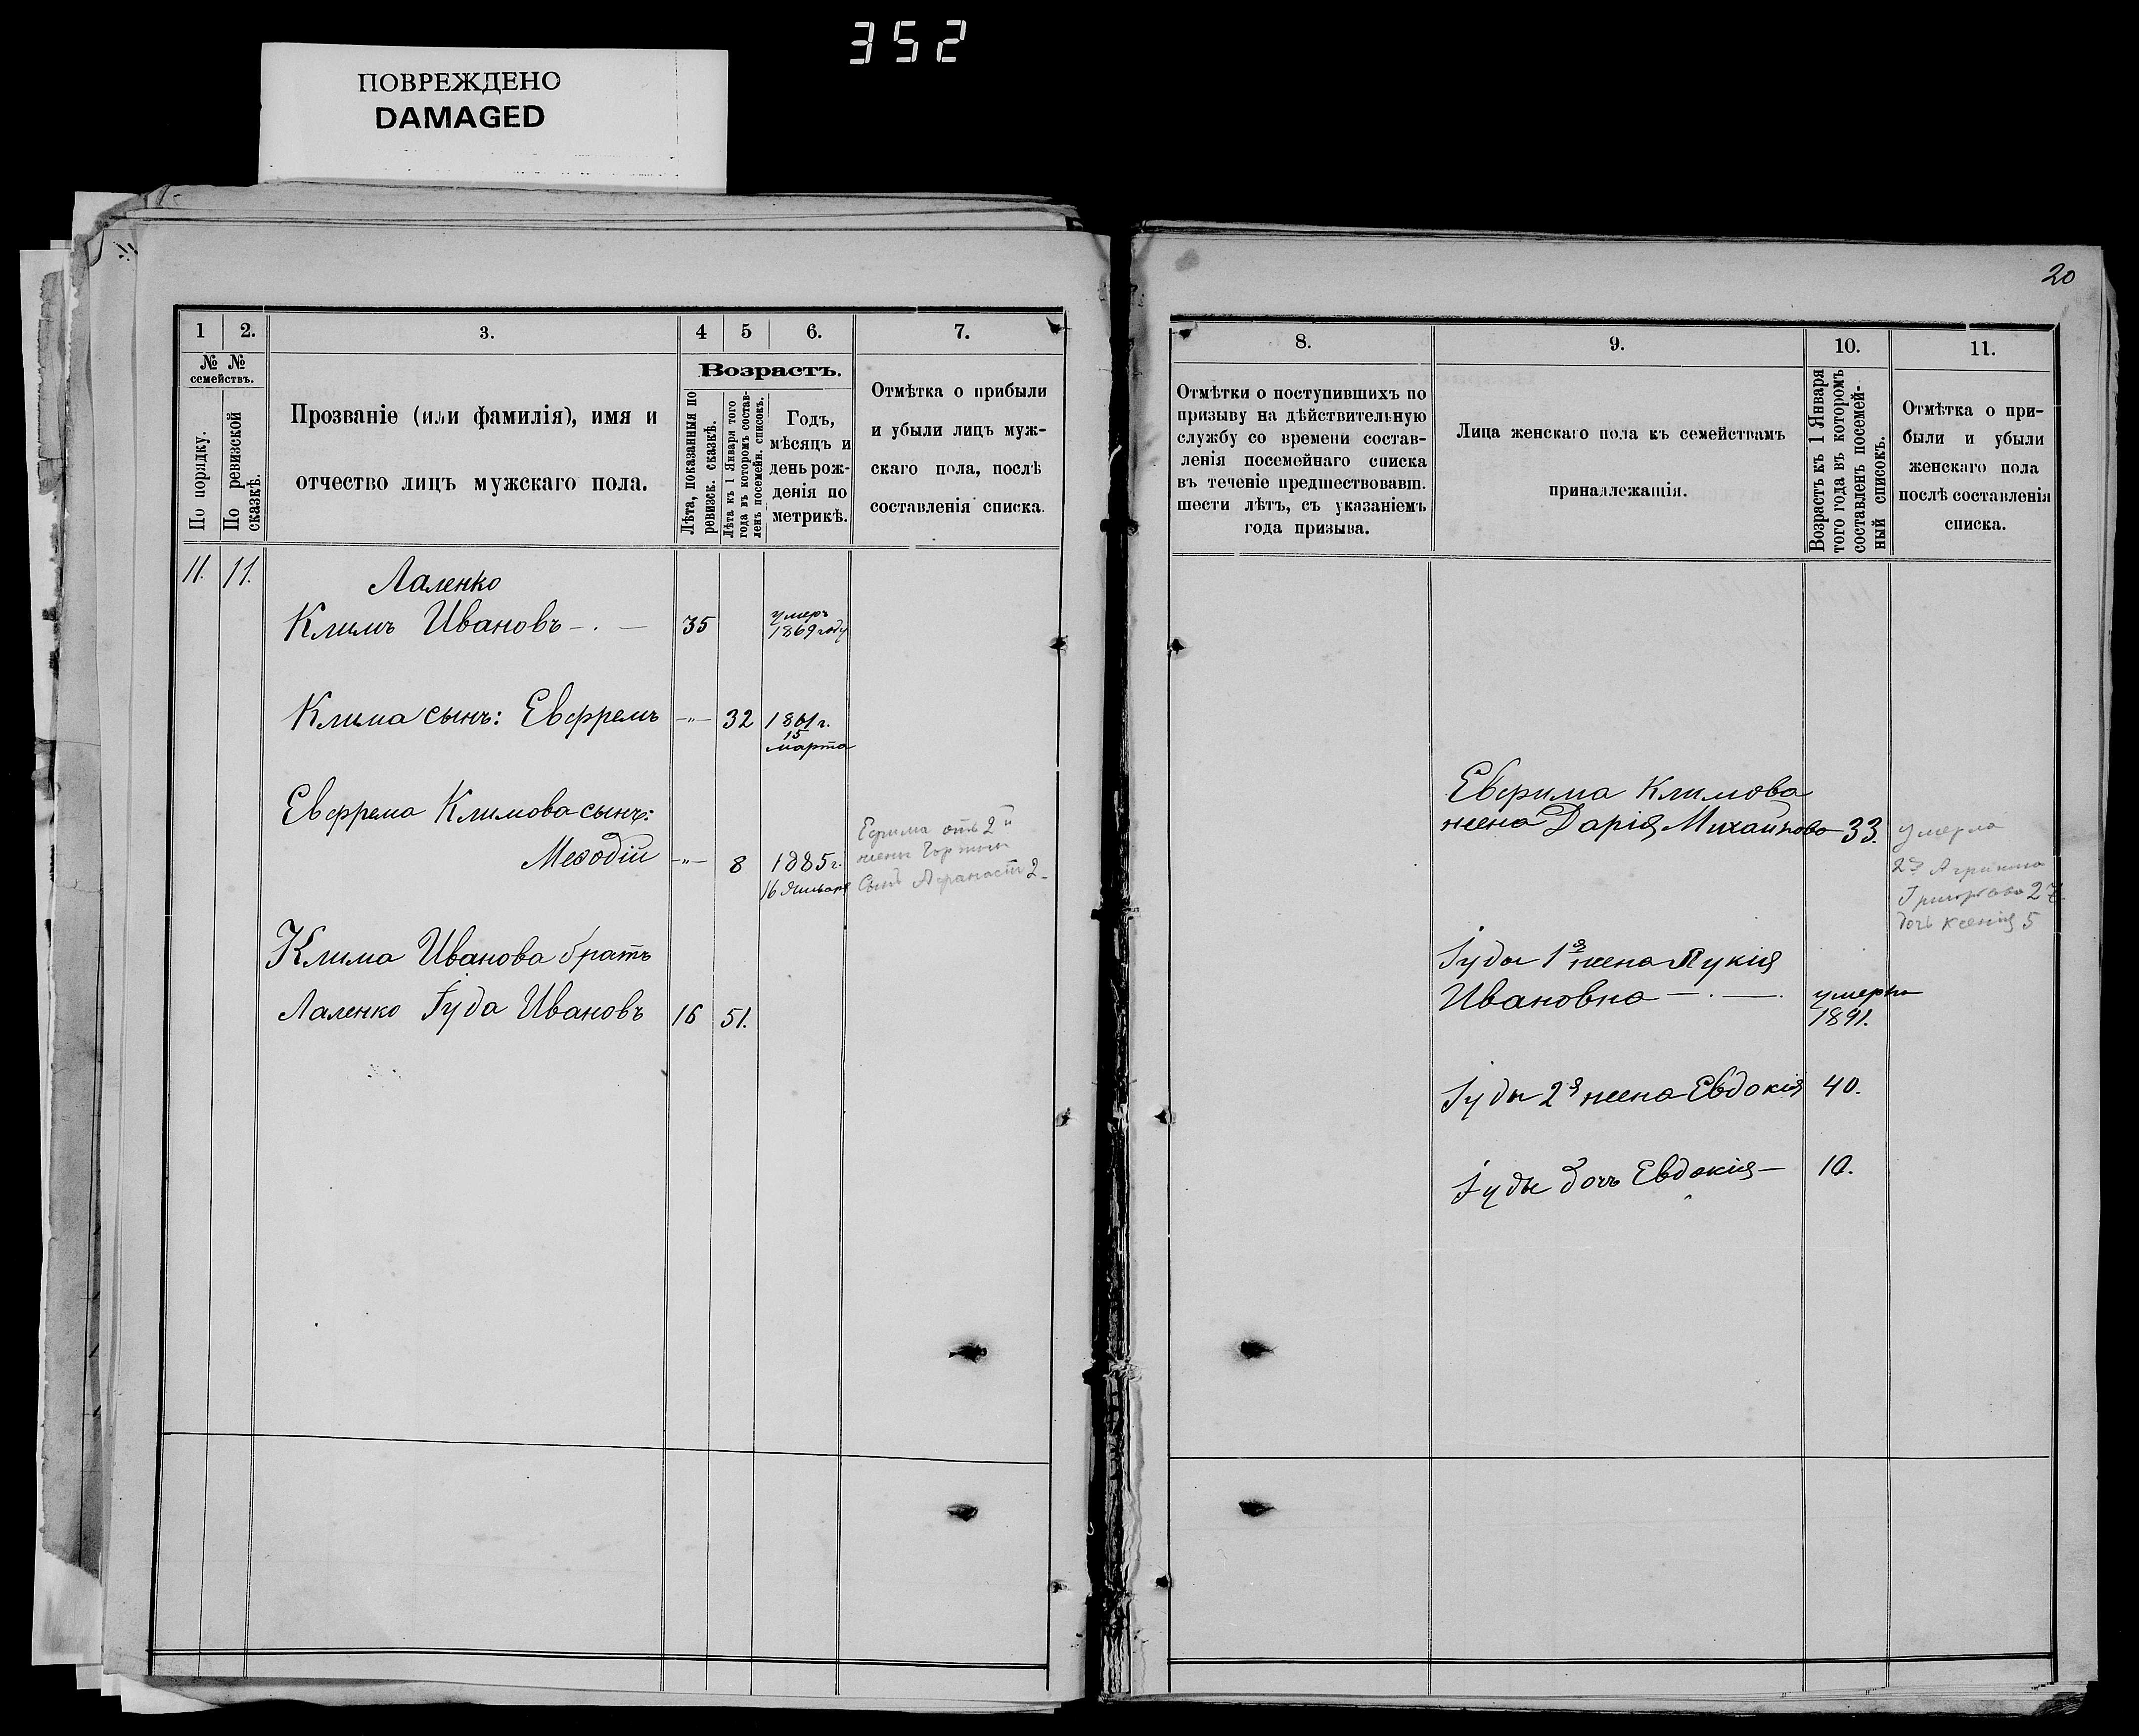 352
ПОВРЕЖДЕНО
DAMAGED
20
1 2. 3. 4 5 6. 7.
№ № семействъ.
По порядку.
По ревизской сказкѣ.
Прозваніе (или фамилія), имя и
отчество лицъ мужскаго пола.
Возрастъ.
Лѣта, показанныя по ревизск. сказкѣ.
Лѣта къ 1 Января того года въ которомъ составленъ посемейн. списокъ.
Годъ,
мѣсяцъ и
день рож-
денія по
метрикѣ.
Отмѣтка о прибыли
и убыли лицъ муж-
скаго пола, послѣ
составленія списка.
11. 11. Лаленко
Климъ Ивановъ 35 умеръ
1869 году
Клима сынъ: Евфремъ 32 1861 г.
15
марта
Евфрема Климова сынъ:
Меѳодій 8 1885 г.
16 Января
Ефрима отъ 2й
жены
Сынъ Афанасій 2
Клима Иванова братъ
Лаленко Іуда Ивановъ 16 51.
8. 9. 10. 11.
Отмѣтки о поступившихъ по
призыву на дѣйствительную
службу со времени состав-
ленія посемейнаго списка
въ теченіе предшествовавш.
шести лѣтъ, съ указаніемъ
года призыва.
Лица женскаго пола къ семействамъ
принадлежащія.
Возрастъ къ 1 Января
того года въ которомъ
составленъ посемей-
ный списокъ.
Отмѣтка о при-
были и убыли
женскаго пола
послѣ составленія
списка.
Евфрима Климова
жена Дарія Михайлова 33. умерла
2я Агрипина
Григорьева 27
дочь Ксенія 5
Іуды 1я жена Лукія
Ивановна умерла
1891.
Іуды 2я жена Евдокія 40.
Іуды дочь Евдокія 10.